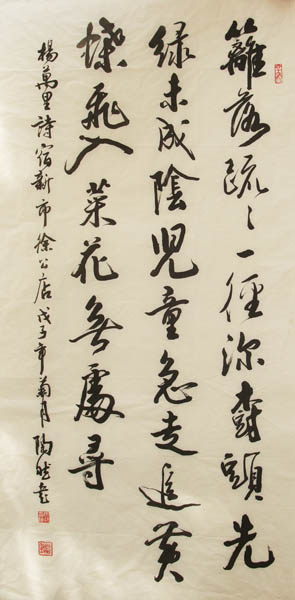 籬落疏〻一徑深樹頭先
緑未成陰兒童急走追黄
蝶飛入菜花無處尋
楊萬里詩宿新市徐公店戊子年菊月陶